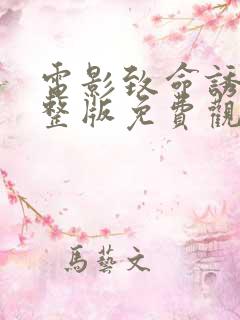 電影致命誘
整版免費觀
馬藝文